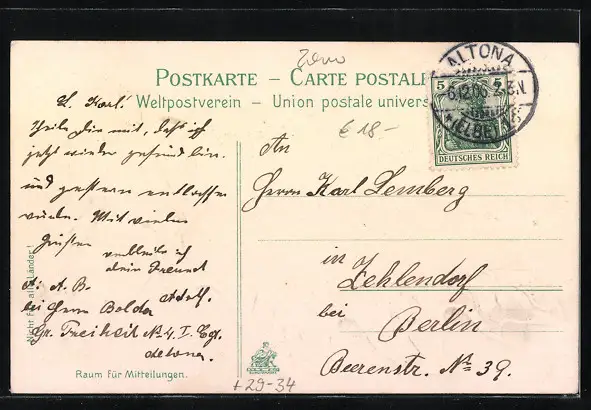 POSTKARTE – CARTE POSTALE
Weltpostverein – Union postale univers
€ 18-
ALTONA
-6.12.06 2-3N.
* (ELBE) 1
5 5
DEUTSCHES REICH
L. Karl!
Teile Dir mit, daß ich
jetzt wieder gesund bin
und gestern entlassen
wurde. Mit vielen
Grüßen
verbleibe ich
dein Freund
Adolf.
A. A. B.
bei Herrn Bolda
Gr. Freiheit No 4, I. Etg.
Altona.
An
Herrn Karl Lemberg
in
Zehlendorf
bei
Berlin
Beerenstr. No 39.
Nicht für alle Länder!
Raum für Mitteilungen.
+29-34